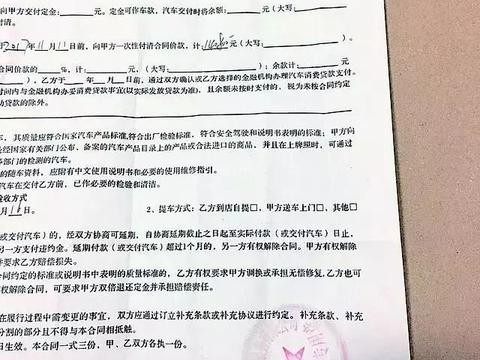 向甲方交付定金:____元。定金可作车款,汽车交付时将余额:____元(大写:
付清。
于2017年11月11日前,向甲方一次性付清合同价款,计:____元(大写:
同价款的____%,计:____元,(大写:____);余款计:____元
),乙方于____年__月__日前,通过双方确认或乙方选择的金融机构办理汽车消费贷款支付。
时间内与金融机构办妥消费贷款事宜(以实际发放贷款为准),且余额未按时支付的,视为未按合同约定
动贷款的除外。
车,其质量应符合国家汽车产品标准,符合出厂检验标准,符合安全驾驶和说明书表明的标准;甲方向
是经国家有关部门公布、备案的汽车产品目录上的产品或合法进口的商品,并且在上牌照时,可通过
多部门的检测的汽车。
的随车资料,应附有中文使用说明书和必要的使用维修指引。
汽车在交付乙方前,已作必要的检验和清洁。
验收方式
月11日 2、提车方式:乙方到店自提□,甲方送车上门□,其他□
或交付汽车)的,经双方协商可延期,自协商延期截止之日起至实际付款(或交付汽车)日止,
另一方支付违约金。延期付款(或交付汽车)超过1个月的,另一方有权解除合同。甲方有权解除
并要求乙方赔偿损失。
合同约定的标准或说明书中表明的质量标准的,乙方有权要求甲方调换或承担无偿修复,乙方也可
合同,可要求甲方双倍退还定金并承担赔偿责任。
在履行过程中需变更的事宜,双方应通过订立补充条款或补充协议进行约定。补充条款、补充
分割的部分且不得与本合同相抵触。
日生效。本合同一式三份,甲、乙双方各执一份。